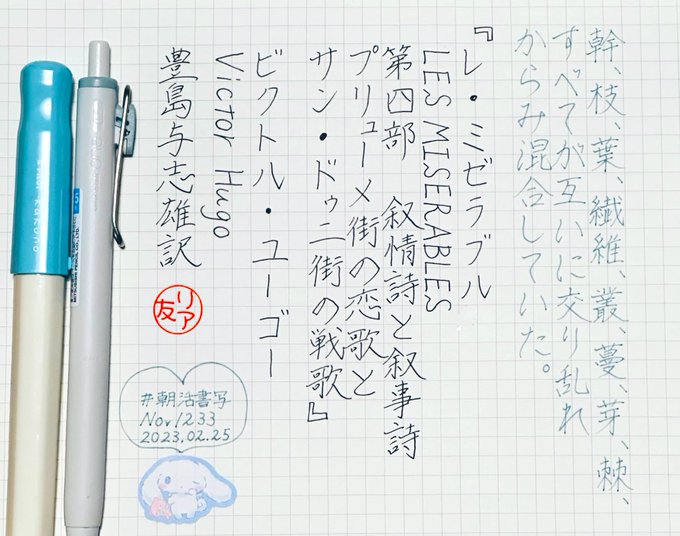 幹、枝、葉、繊維、叢、蔓、芽、棘、
すべてが互いに交り乱れ
からみ混合していた。
『レ・ミゼラブル
LES MISERABLES
第四部 叙情詩と叙事詩
プリューメ街の恋歌と
サン・ドゥニ街の戦歌』
ビクトル・ユーゴー
Victor Hugo
豊島与志雄訳
リア友
#朝活書写
No,1233
2023,02.25